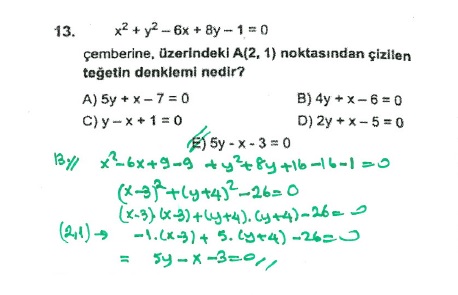 13. x² + y² – 6x + 8y – 1 = 0
çemberine, üzerindeki A(2, 1) noktasından çizilen
teğetin denklemi nedir?
A) 5y + x – 7 = 0 B) 4y + x – 6 = 0
C) y – x + 1 = 0 D) 2y + x – 5 = 0
E) 5y - x - 3 = 0
13// x²-6x+9-9 +y²+8y+16-16-1=0
(x-3)²+(y+4)²-26=0
(x-3).(x-3)+(y+4).(y+4)-26=0
(2,1)→ -1.(x-3)+ 5.(y+4)-26=0
= 5y-x-3=0//